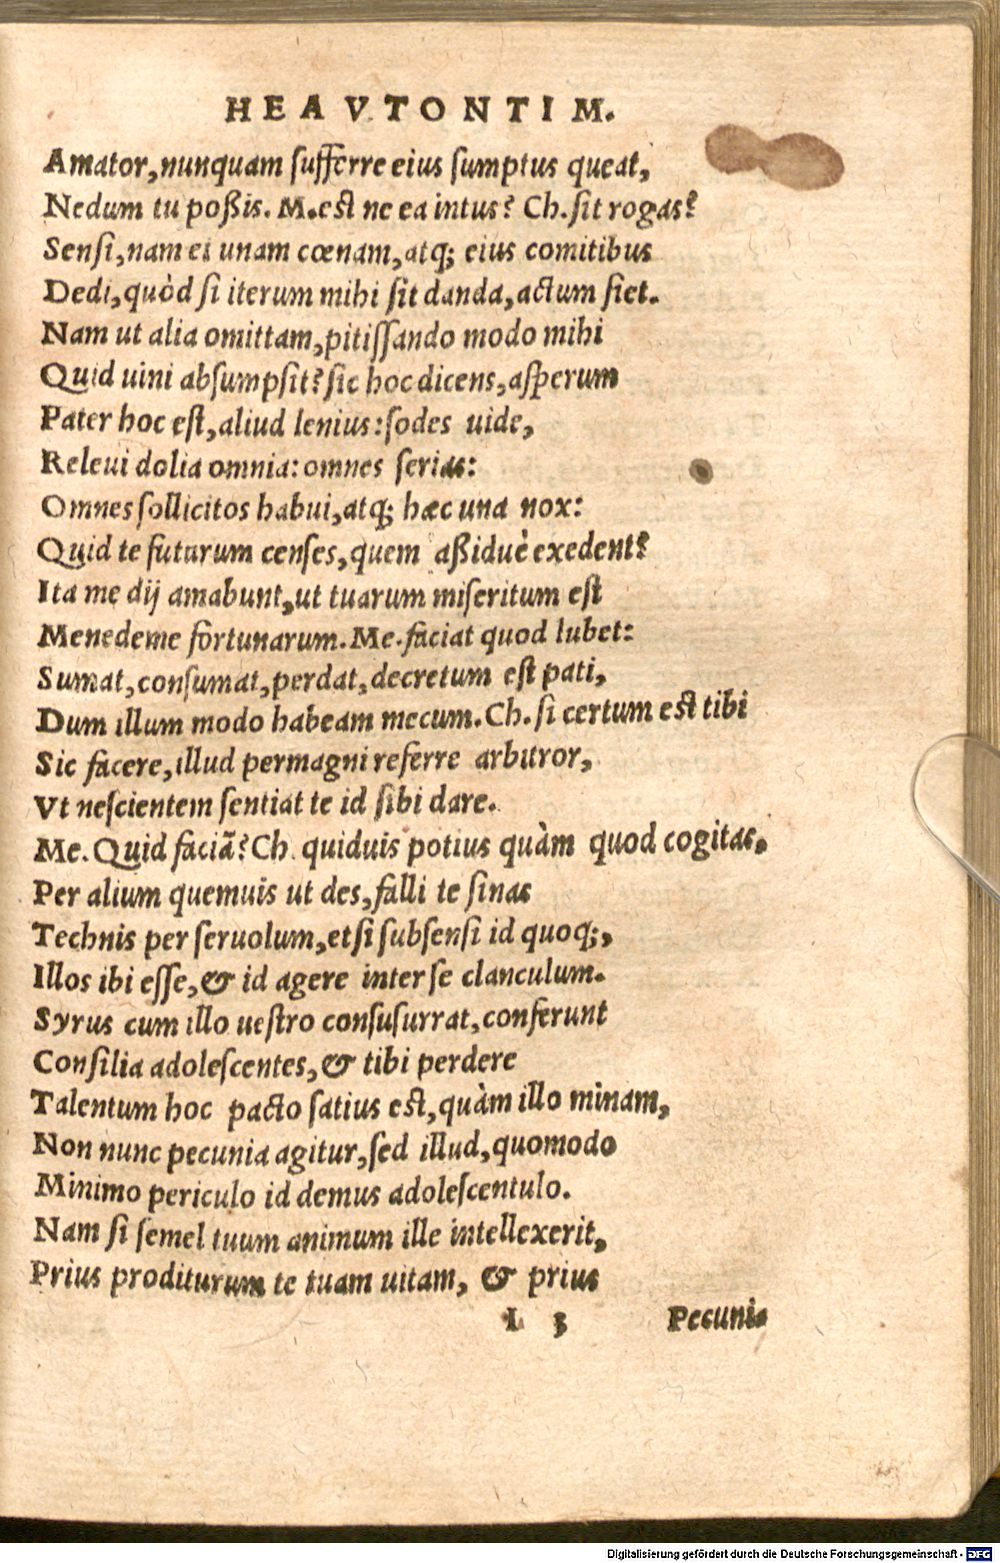 HEAVTONTIM.
Amator, nunquam sufferre eius sumptus queat,
Nedum tu poßis. M. est ne ea intus? Ch. sit rogas?
Sensi, nam ei unam cœnam, atq; eius comitibus
Dedi, quòd si iterum mihi sit danda, actum siet.
Nam ut alia omittam, pitissando modo mihi
Quid uini absumpsit? sic hoc dicens, asperum
Pater hoc est, aliud lenius: sodes uide,
Releui dolia omnia: omnes serias:
Omnes sollicitos habui, atq; hæc una nox:
Quid te futurum censes, quem aßiduè exedent?
Ita me dij amabunt, ut tuarum miseritum est
Menedeme fortunarum. Me. faciat quod lubet:
Sumat, consumat, perdat, decretum est pati,
Dum illum modo habeam mecum. Ch. si certum est tibi
Sic facere, illud permagni referre arbitror,
Vt nescientem sentiat te id sibi dare.
Me. Quid faciã? Ch. quiduis potius quàm quod cogitas,
Per alium quemuis ut des, falli te sinas
Technis per seruolum, etsi subsensi id quoq;,
Illos ibi esse, & id agere inter se clanculum.
Syrus cum illo uestro consusurrat, conferunt
Consilia adolescentes, & tibi perdere
Talentum hoc pacto satius est, quàm illo minam,
Non nunc pecunia agitur, sed illud, quomodo
Minimo periculo id demus adolescentulo.
Nam si semel tuum animum ille intellexerit,
Prius proditurum te tuam uitam, & prius
I 3 Pecunia
Digitalisierung gefördert durch die Deutsche Forschungsgemeinschaft - DFG